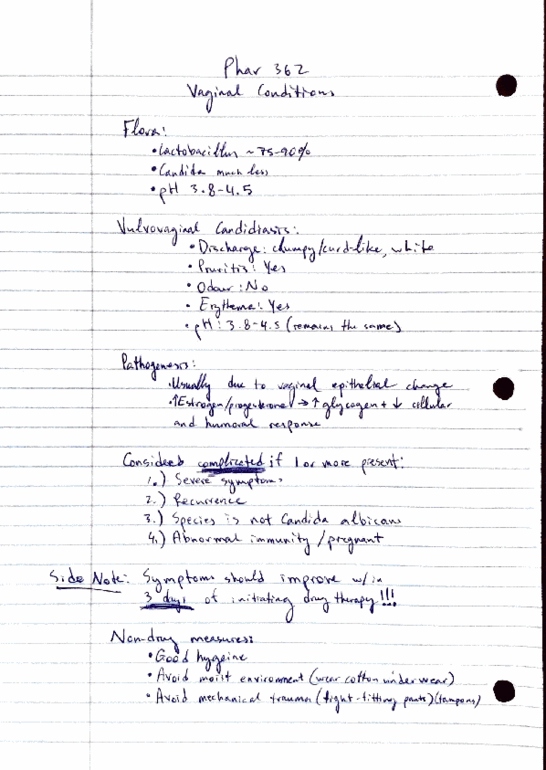 Phar 362
Vaginal Conditions
Flora:
• Lactobacillus ~75-90%
• Candida much less
• pH 3.8-4.5
Vulvovaginal Candidiasis:
• Discharge: clumpy/curd-like, white
• Pruritis: Yes
• Odour: No
• Erythema: Yes
• pH: 3.8-4.5 (remains the same)
Pathogenesis:
• Usually due to vaginal epithelial change
• ↑Estrogen/progesterone → ↑ glycogen + ↓ cellular
and humoral response
Considered complicated if 1 or more present:
1.) Severe symptoms
2.) Recurrence
3.) Species is not Candida albicans
4.) Abnormal immunity/pregnant
Side Note: Symptoms should improve w/in
3 days of initiating drug therapy!!!
Non-drug measures:
• Good hygeine
• Avoid moist environment (wear cotton underwear)
• Avoid mechanical trauma (tight-fitting pants)(tampons)